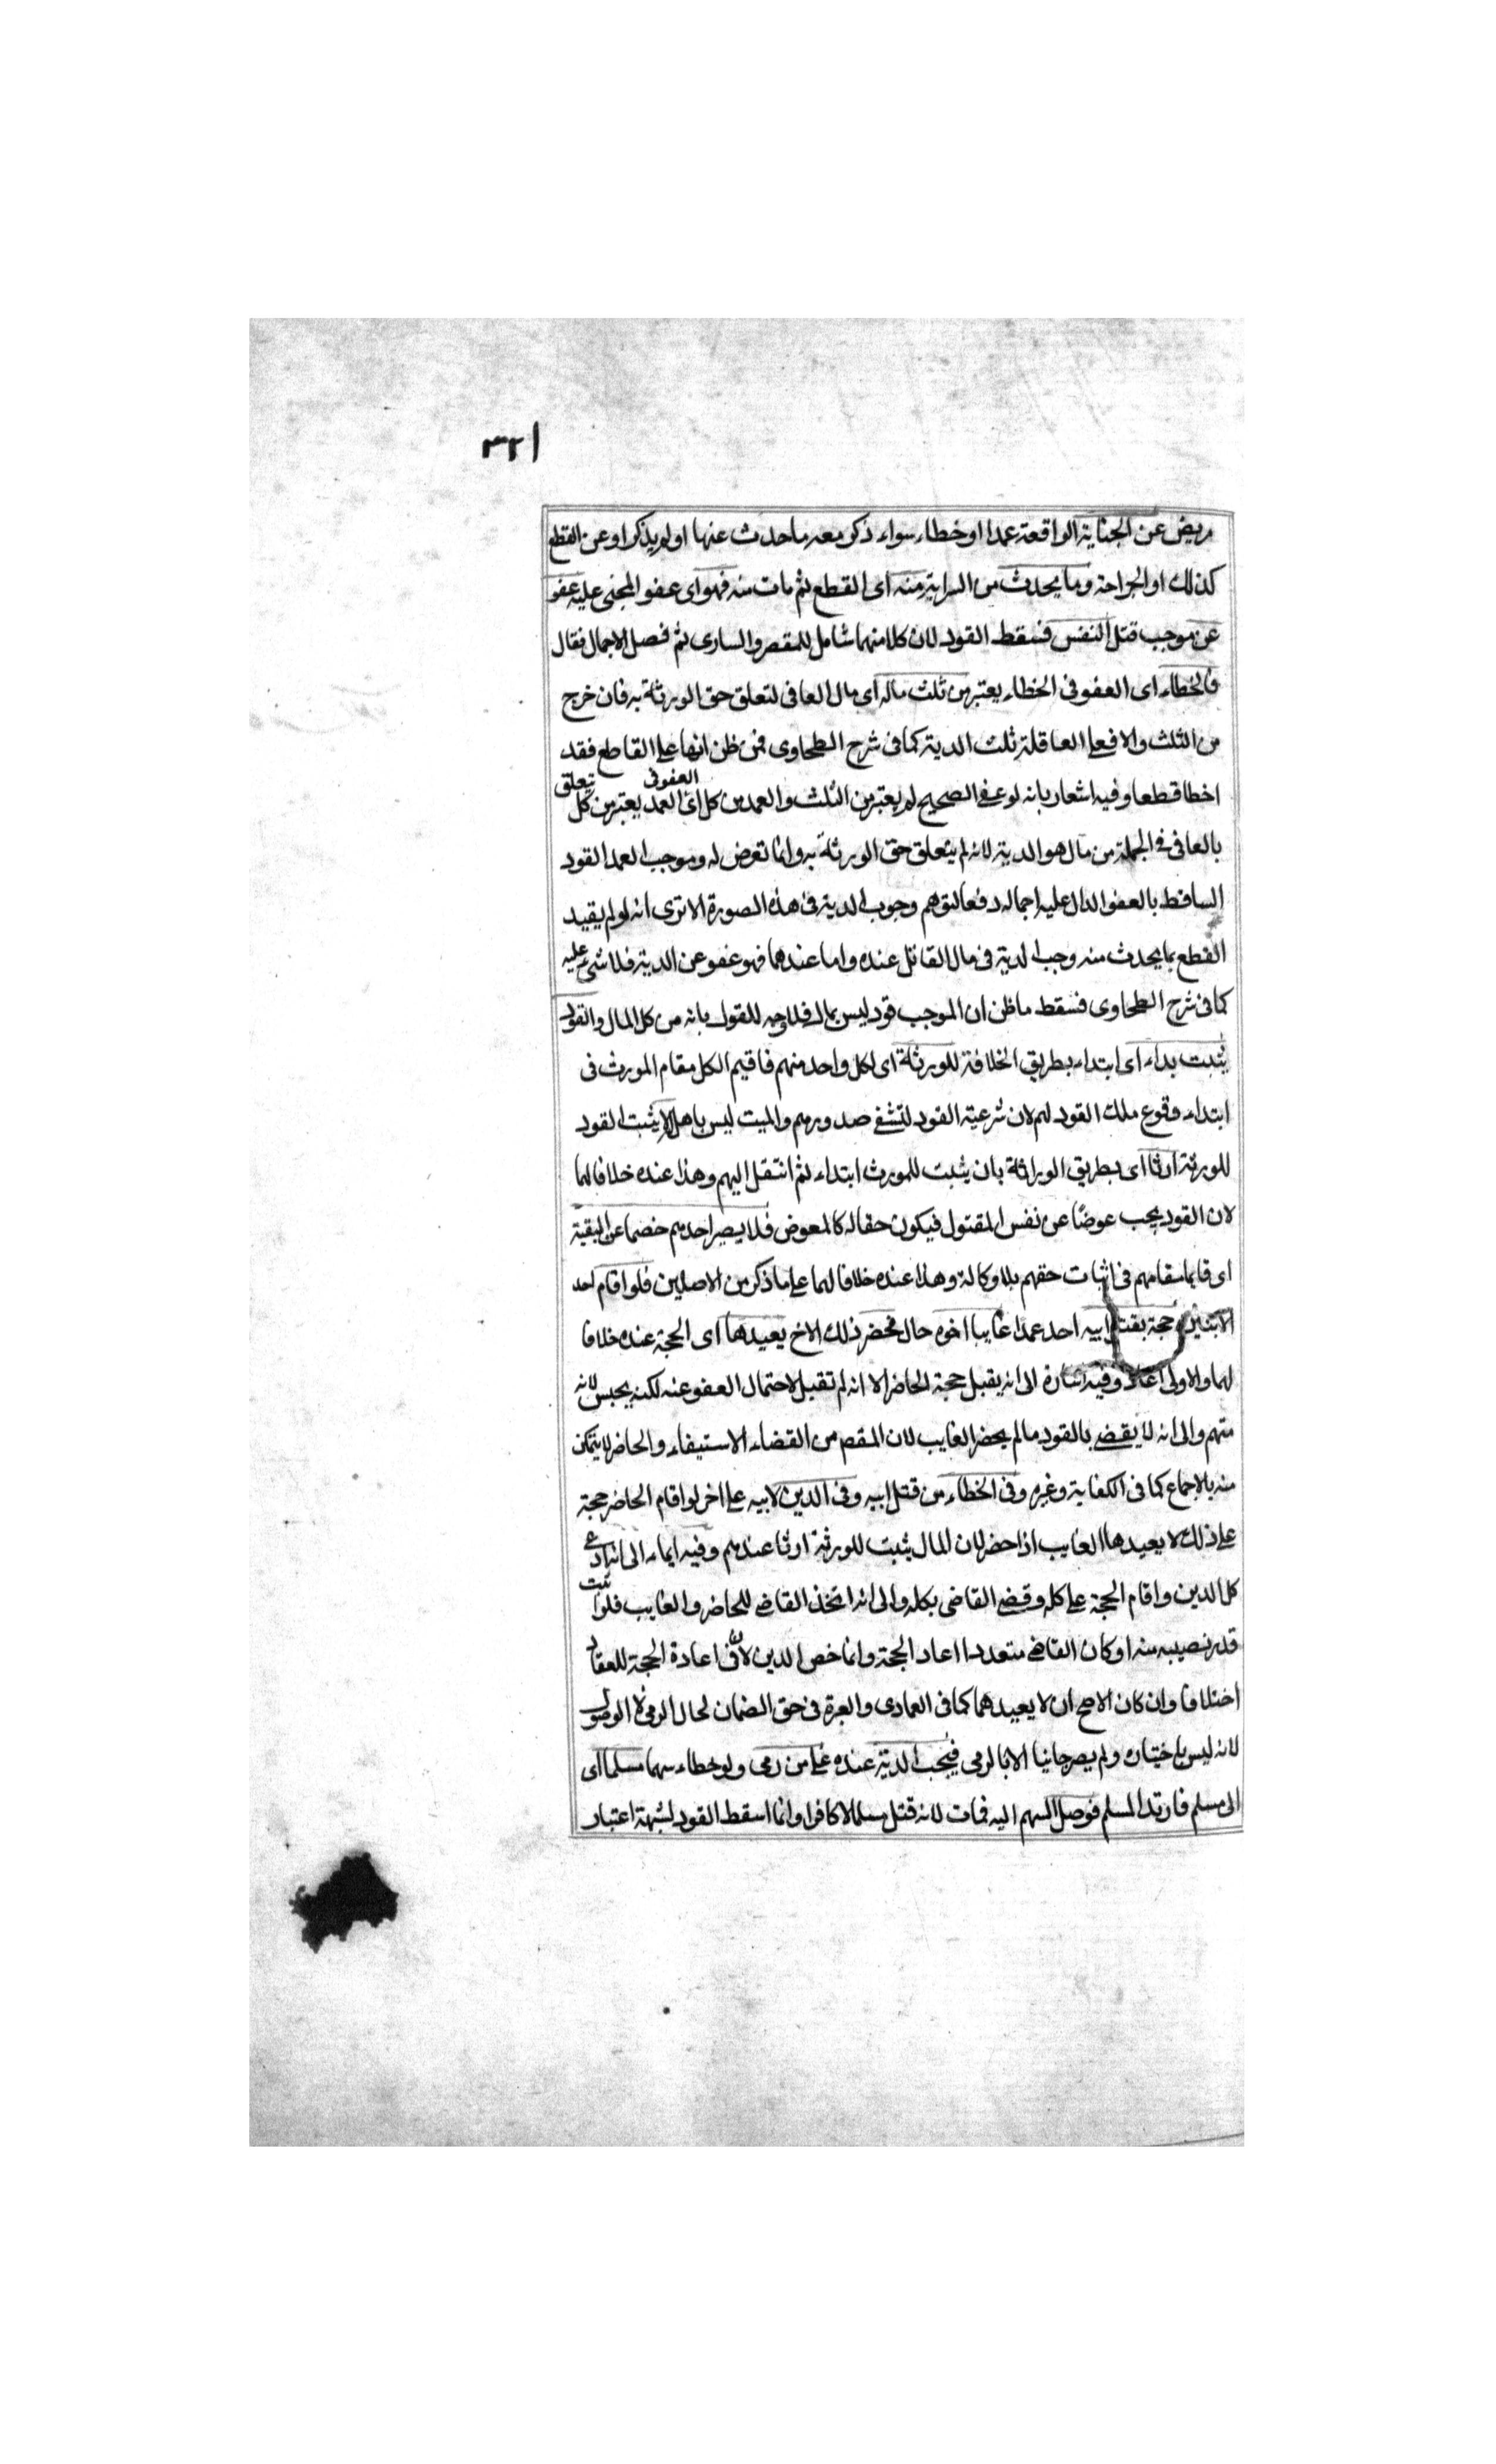 ٣٢١
مريض عن الجناية الواقعة عمدا او خطاء سواء ذكر معه ما حدث عنها او لم يذكر او عن القطع
كذلك او الجراحة وما يحدث من السراية منه اى القطع ثم مات منه فهو اى عفو المجنى عليه عفو
عن موجب قتل النفس فسقط القود لان كلا منهما شامل للمقصر والسارى ثم فصل الاجمال فقال
فالخطاء اى العفو فى الخطاء يعتبر من ثلث ماله اى مال العافى لتعلق حق الورثة به فان خرج
من الثلث والا فعلى العاقلة ثلث الدية كما فى شرح الطحاوى فمن ظن انها على القاطع فقد
اخطا قطعا وفيه اشعار بانه لو عفى الصحيح لم يعتبر من الثلث والعمد من كل اى العفو فى العمد يعتبر من كل تعلق
بالعافى فى الجملة من مال هو الدية لانه لم يتعلق حق الورثة به وانما تعرض له وموجب العمد القود
الساقط بالعفو الدال عليه اجماله دفعا لتوهم وجوب الدية فى هذه الصورة الا ترى انه لو لم يقيد
القطع بما يحدث منه وجب الدية فى مال القاتل عنده واما عندهما فهو عفو عن الدية فلا شئ عليه
كما فى شرح الطحاوى فسقط ما ظن ان الموجب قود ليس بمال فلا وجه للقول بانه من كل المال والقود
يثبت بداء اى ابتداء بطريق الخلافة للورثة اى لكل واحد منهم فاقيم الكل مقام المورث فى
ابتداء وقوع ملك القود لهم لان شرعية القود لتشفى صدورهم والميت ليس باهل لا يثبت القود
للورثة ارثا اى بطريق الوراثة بان يثبت للمورث ابتداء ثم انتقل اليهم وهذا عنده خلافا لهما
لان القود يجب عوضا عن نفس المقتول فيكون حقا له كالمعوض فلا يصير احدهم خصما عن البقية
اى قايما مقامهم فى اثبات حقهم بلا وكالة وهذا عنده خلافا لهما على ما ذكر من الاصلين فلو اقام احد
الابنين حجة بقتل ابيه احد عمدا غايبا اخوه حال فحضر ذلك الاخ يعيدها اى الحجة عنده خلافا
لهما والاولى اعاد وفيه اشارة الى انه يقبل حجة الحاضر الا انه لم تقبل لاحتمال العفو عنه لكنه يحبس لانه
متهم والى انه لا يقضى بالقود ما لم يحضر الغايب لان المقصم من القضاء الاستيفاء والحاضر لا يتمكن
منه بالاجماع كما فى الكفاية وغيره وفى الخطاء من قتل ابيه وفى الدين لابيه على اخر لو اقام الحاضر حجة
على ذلك لا يعيدها الغايب اذا حضر لان المال يثبت للورثة ارثا عندهم وفيه ايماء الى انه ادعى
كل الدين واقام الحجة على كله وقضى القاضى بكله والى انه اتخذ القاضى للحاضر والغايب فلو اثبت
قدر نصيبه منه او كان القاضى متعددا اعاد الحجة وانما خص الدين لان فى اعادة الحجة للعقار
اختلافا وان كان الاصح ان لا يعيدهما كما فى العمادى والعبرة فى حق الضمان لحال الرمى لا الوصول
لانه ليس باختياره ولم يصر جانيا الا بالرمى فيجب الدية عنده على من رمى ولو خطاء سهما مسلما اى
الى مسلم فارتد المسلم فوصل السهم اليه فمات لانه قتل مسلما لا كافرا وانما اسقط القود لشبهة اعتبار